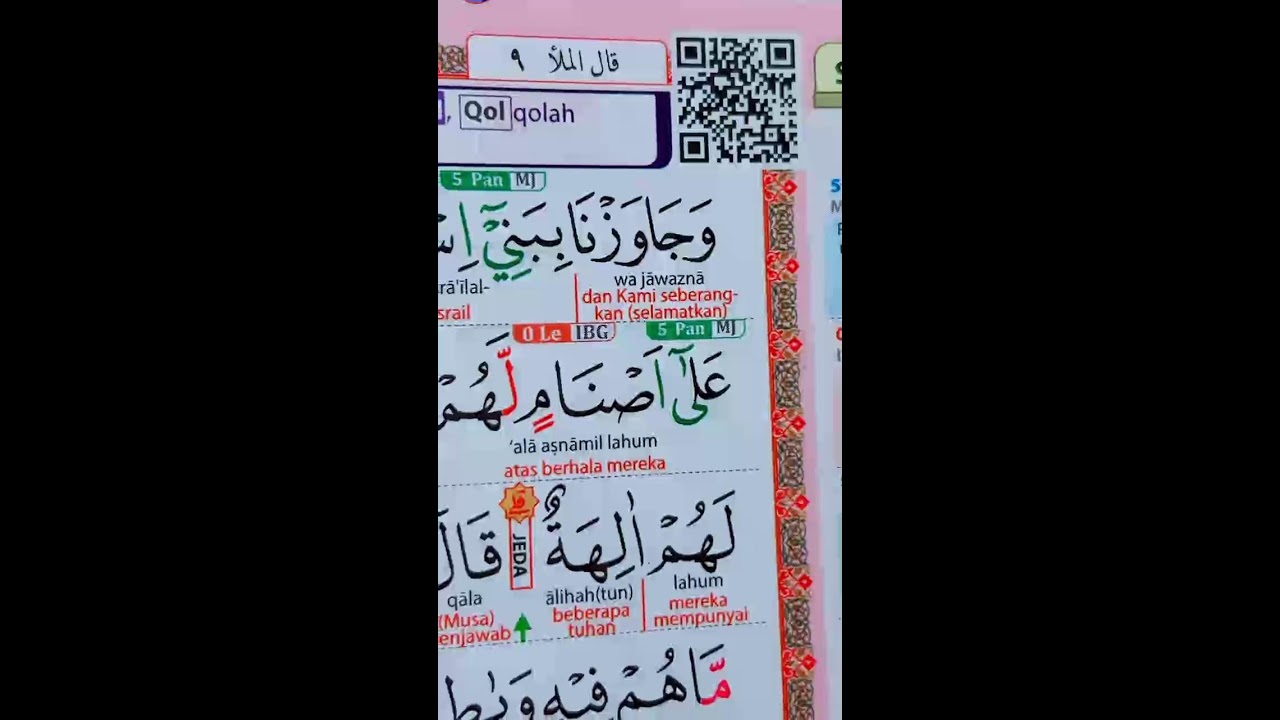 قال الملأ ٩
, Qolqolah
5 Pan MJ
وَجَاوَزْنَا بِبَنِيْٓ
wa jāwaznā
rā'īlal-
dan Kami seberang-
kan (selamatkan)
srail
0 Le IBG 5 Pan MJ
عَلٰٓى اَصْنَامٍ لَّهُمْ
‘alā aṣnāmil lahum
atas berhala mereka
لَهُمْ اٰلِهَةٌ ۗ قَالَ
JEDA
lahum ālihah(tun) qāla
mereka
mempunyai
beberapa
tuhan
(Musa)
enjawab
مَّا هُمْ فِيْهِ